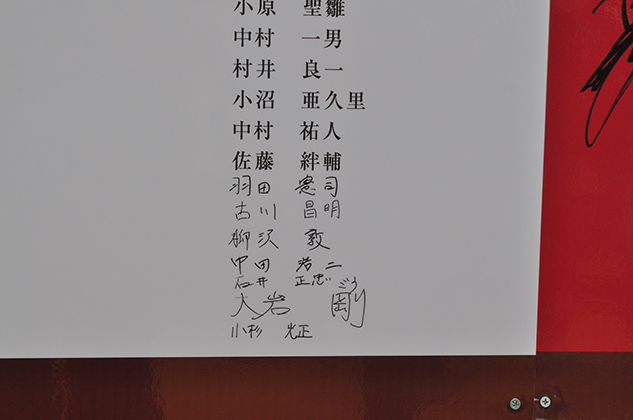 小原 聖雛
中村 一男
村井 良一
小沼 亜久里
中村 祐人
佐藤 絆輔
羽田 憲司
古川 昌明
柳沢 敦
中田 浩二
石井 正忠
大岩 剛
ごう
小杉 光正